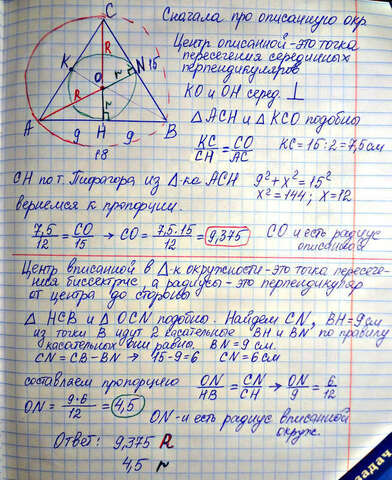 Сначала про описанную окр.
Центр описанной - это точка
пересечения серединных
перпендикуляров
KO и OH серед ⊥
△ ACH и △ KCO подобны
KC/CH = CO/AC   KC = 15:2 = 7,5 см
C
K
N 15
O
R
r
R
r
A 9 H 9 B
18
CH по т. Пифагора из △-ка ACH   9² + x² = 15²
x² = 144; x = 12
вернемся к пропорции.
7,5/12 = CO/15 → CO = 7,5·15/12 = 9,375   CO и есть радиус
описанной
Центр вписанной в △-к окружности - это точка пересече-
ния биссектрис, а радиусы - это перпендикуляр
от центра до стороны
△ HCB и △ OCN подобны. Найдем CN, BH = 9 см
из точки B идут 2 касательные BH и BN по правилу
касательных они равны. BN = 9 см.
CN = CB - BN → 15 - 9 = 6   CN = 6 см
составляем пропорцию   ON/HB = CN/CH → ON/9 = 6/12
ON = 9·6/12 = 4,5   ON - и есть радиус вписанной
окруж.
Ответ: 9,375 R
4,5 r
задач